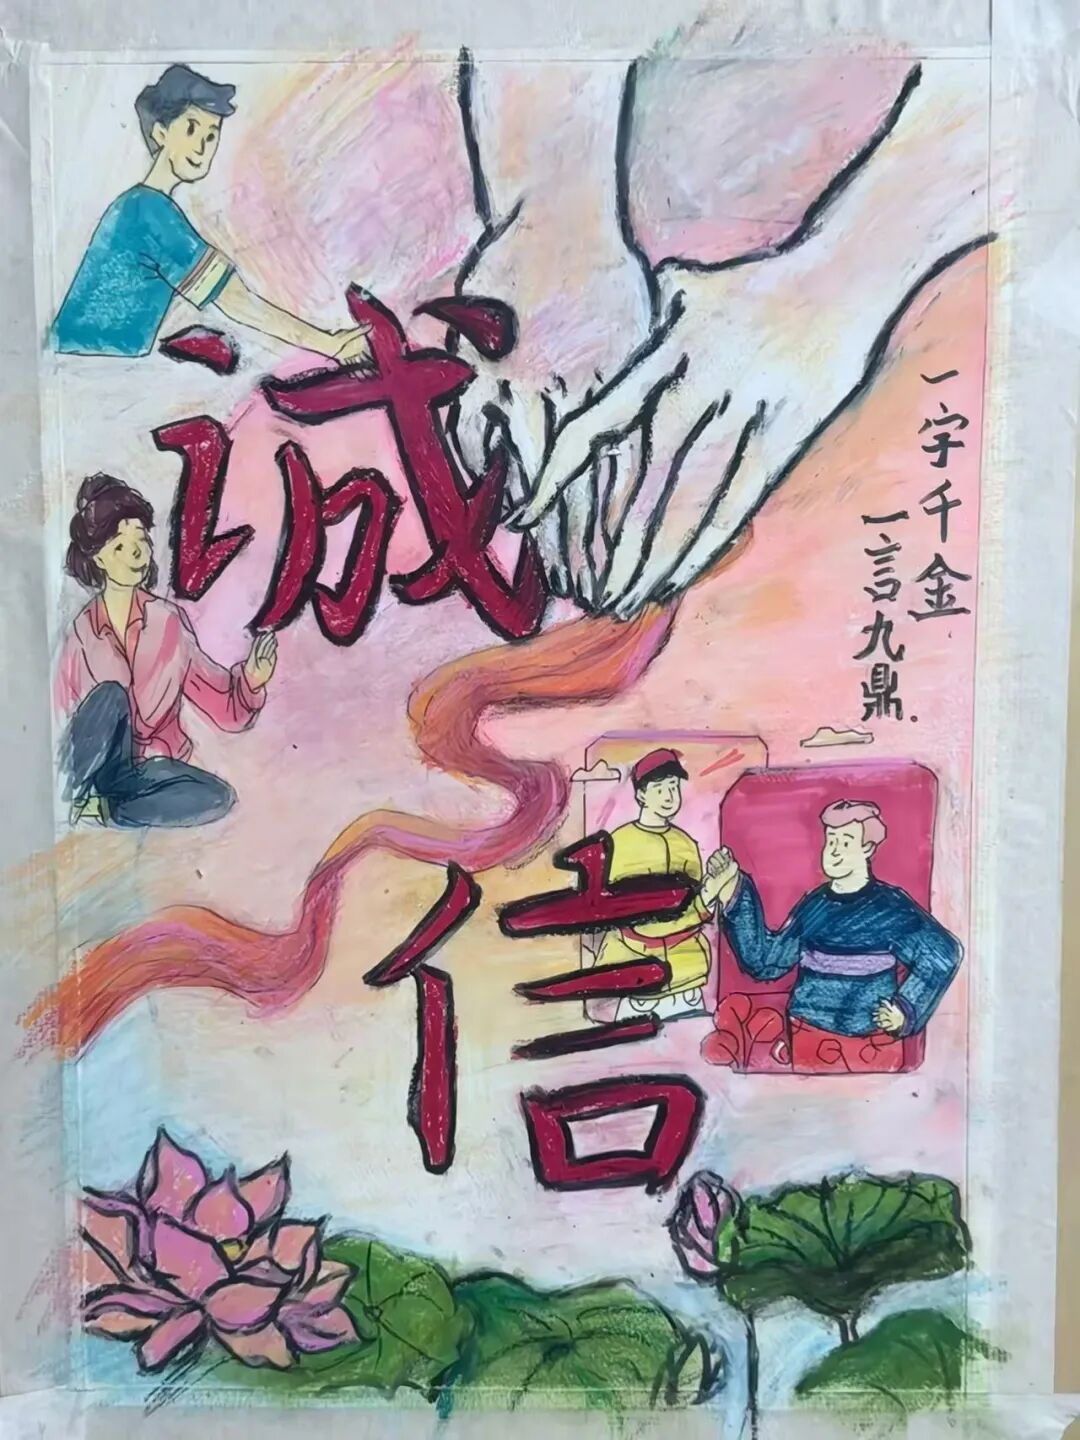 诚
信
一字千金
一言九鼎.